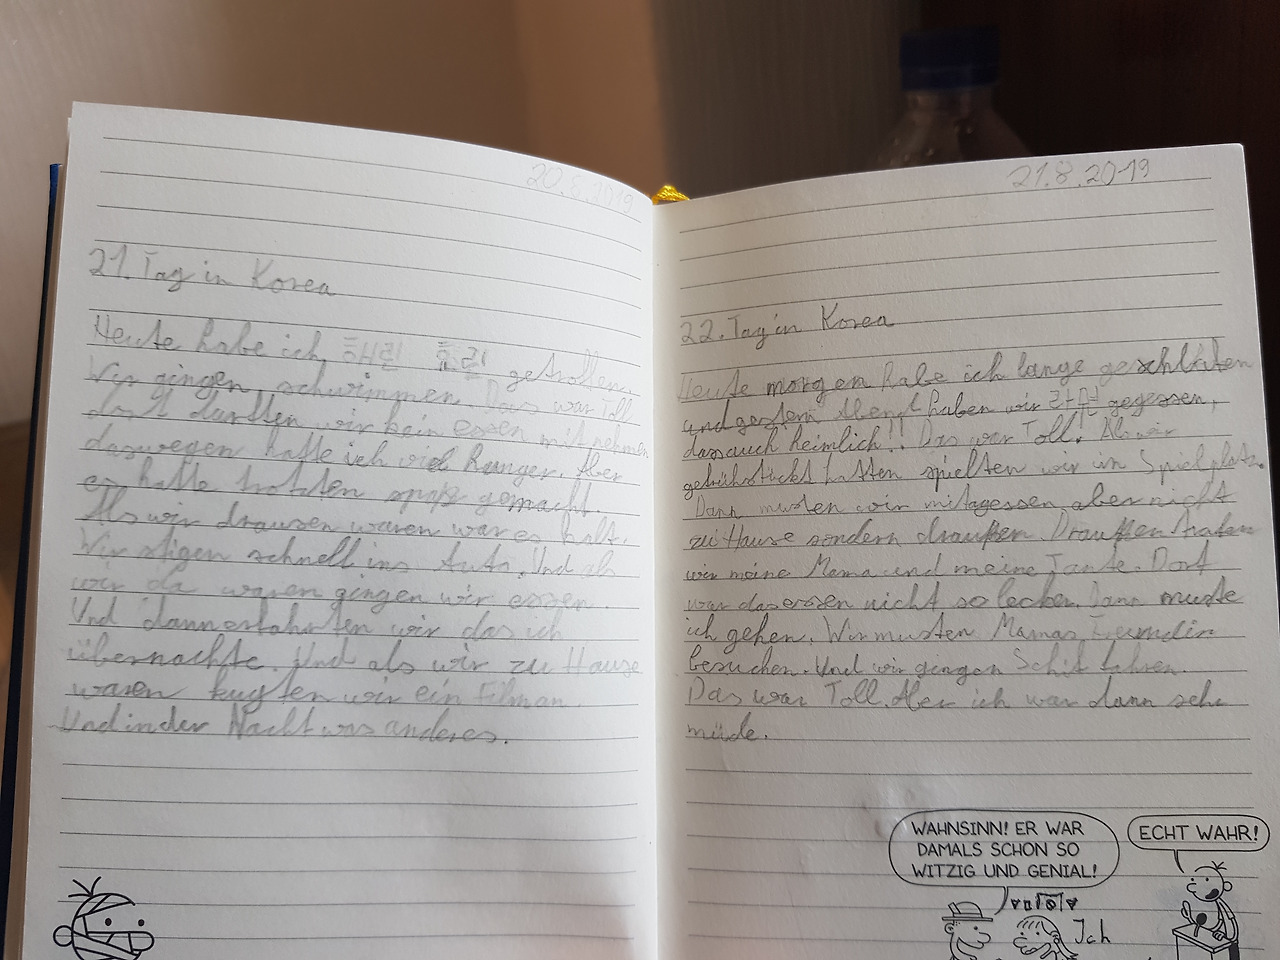 20.8.2019
21. Tag in Korea
Heute habe ich 해린 효린 getroffen.
Wir gingen schwimmen. Das war Toll
dort durften wir kein essen mit nehmen
daswegen hatte ich viel hunger. Aber
es hatte trotzten spaß gemacht.
Als wir drausen waren war es kalt.
Wir stigen schnell ins Auto. Und als
wir da waren gingen wir essen.
Und dann erfahrten wir das ich
übernachte. Und als wir zu Hause
waren kugten wir ein Film an.
Und in der Nacht was anderes.
21.8.2019
22. Tag in Korea
Heute morgen habe ich lange geschlafen
und gestern Abend haben wir 라면 gegessen,
das auch heimlich!! Das war Toll! Als wir
gefrühstückt hatten spielten wir im Spielplatz.
Dann musten wir mitagessen aber nicht
zu Hause sondern draußen. Draußen trafen
wir meine Mama und meine Tante. Dort
war das essen nicht so lecker. Dann muste
ich gehen. Wir musten Mamas Freundin
besuchen. Und wir gingen Schif fahren.
Das war Toll. Aber ich war dann sehr
müde.
WAHNSINN! ER WAR
DAMALS SCHON SO
WITZIG UND GENIAL!
ECHT WAHR!
Ich